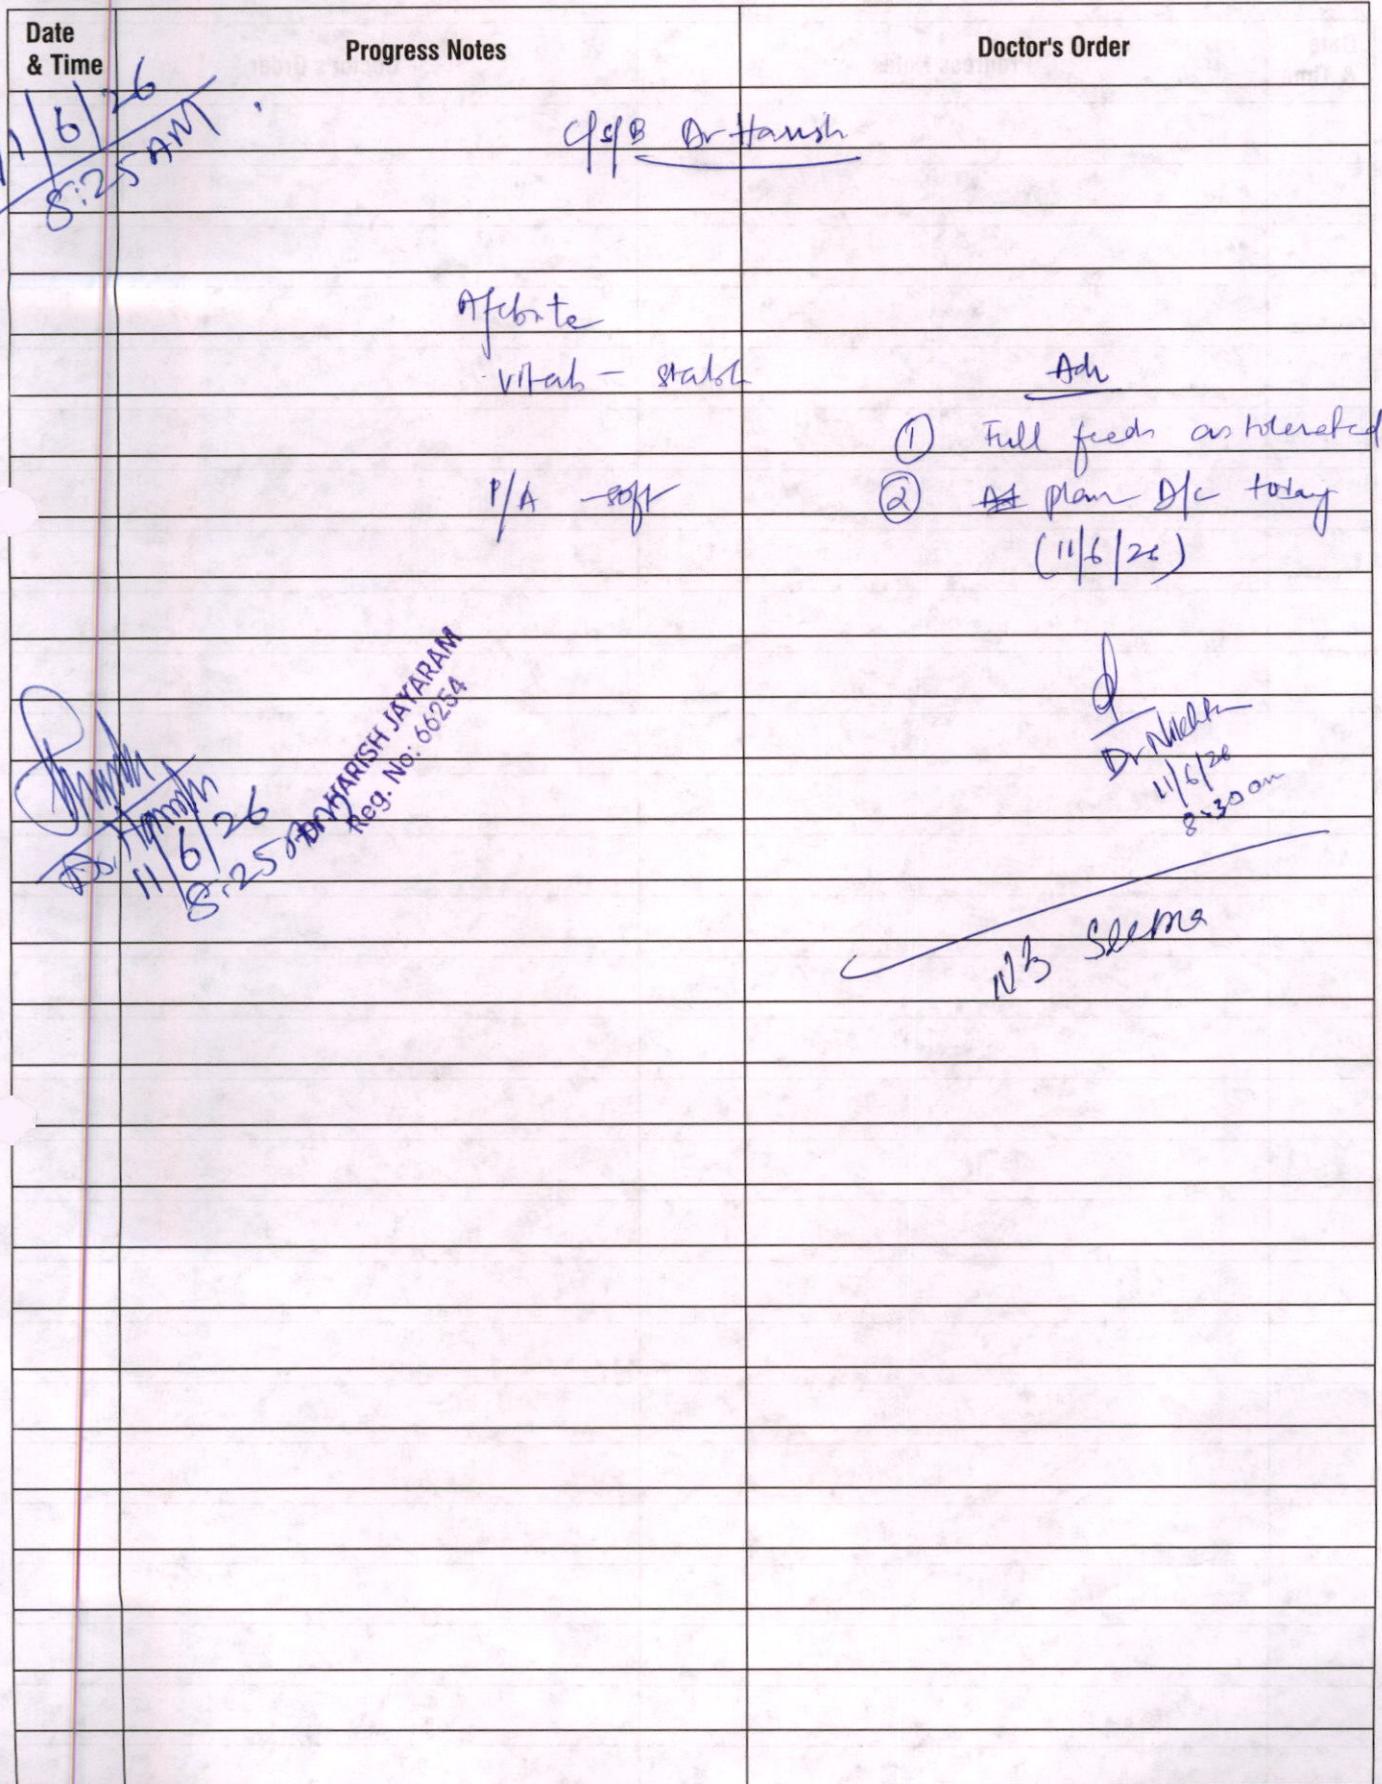 Date
& Time
Progress Notes
Doctor's Order
11/6/26
8:25 AM
C/S/B Dr Harish
Afebrile
vitals - stable
Adv
① Full feeds as tolerated
P/A soft
② plan D/c today
(11/6/26)
Dr. HARISH JAYARAM
Reg. No: 66254
11/6/26
8:25 AM
Dr
11/6/26
8:30 am
Seema